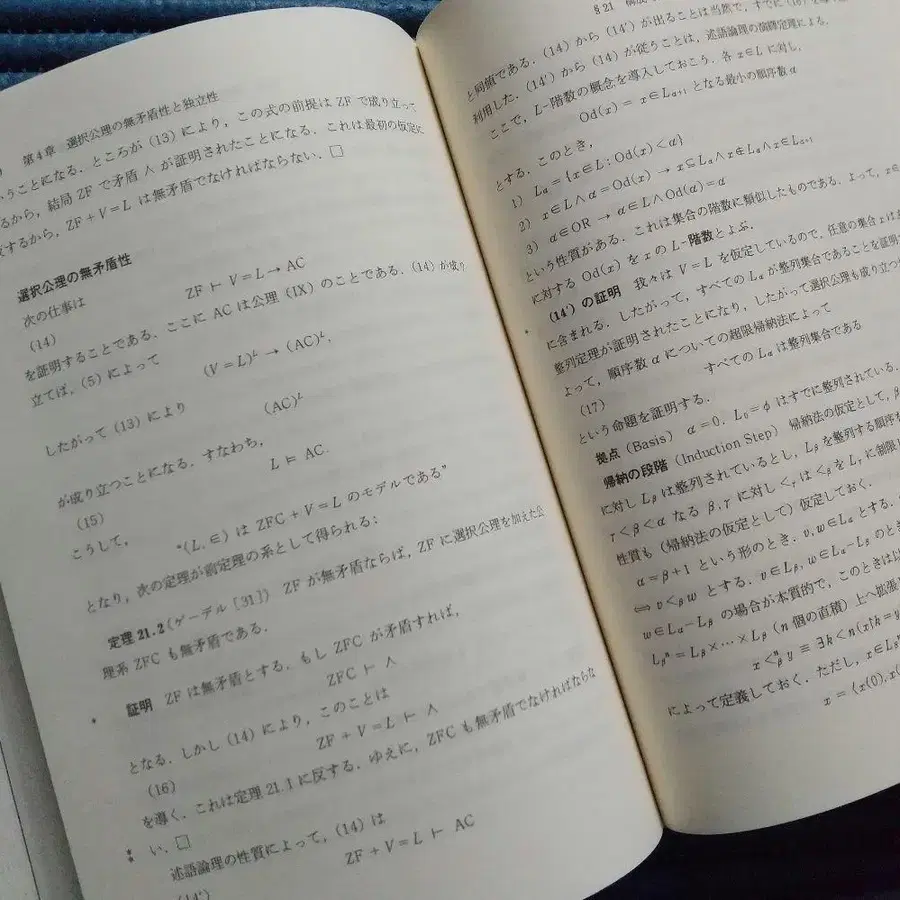 第4章 選択公理の無矛盾性と独立性
うことになる．ところが (13) により，この式の前提は ZF で成り立って
るから，結局 ZF で矛盾 ⋏ が証明されたことになる．これは最初の仮定に
するから，ZF+V=L は無矛盾でなければならない．□
選択公理の無矛盾性
次の仕事は
(14) ZF ⊢ V=L→AC
を証明することである．ここに AC は公理 (IX) のことである．(14) が成り
立てば，(5) によって
(V=L)ᴸ → (AC)ᴸ，
したがって (13) により
(AC)ᴸ
が成り立つことになる．すなわち，
(15) L ⊨ AC.
こうして，
“(L,∈) は ZFC+V=L のモデルである”
となり，次の定理が前定理の系として得られる：
定理 21.2 (ゲーデル [31]) ZF が無矛盾ならば，ZF に選択公理を加えた公
理系 ZFC も無矛盾である．
* 証明 ZF は無矛盾とする．もし ZFC が矛盾すれば，
ZFC ⊢ ⋏
となる．しかし (14) により，このことは
(16) ZF+V=L ⊢ ⋏
を導く．これは定理 21.1 に反する．ゆえに，ZFC も無矛盾でなければならな
** い．□
述語論理の性質によって，(14) は
ZF+V=L ⊢ AC
(14′)
§21
と同値である．(14) から (14′) が出ることは当然で，すでに
利用した．(14′) から (14) が従うことは，述語論理の演繹定理による．
ここで，L-階数の概念を導入しておこう．各 x∈L に対し，
Od(x) = x∈Lα+1 となる最小の順序数 α
とする．このとき，
1) Lα={x∈L:Od(x)<α}
2) x∈L∧α=Od(x) → x⊆Lα∧x∉Lα∧x∈Lα+1
3) α∈OR → α∈L∧Od(α)=α
という性質がある．これは集合の階数に類似したものである．よって，
に対する Od(x) を x の L-階数とよぶ．
* (14′) の証明 我々は V=L を仮定しているので，任意の集合 x は
に含まれる．したがって，すべての Lα が整列集合であることを証明
整列定理が証明されたことになり，したがって選択公理も成り立つ
よって，順序数 α についての超限帰納法によって
(17) すべての Lα は整列集合である
という命題を証明する．
拠点 (Basis) α=0．L₀=φ はすでに整列されている．
帰納の段階 (Induction Step) 帰納法の仮定として，β
に対し Lβ は整列されているとし，Lβ を整列する順序を
γ<β<α なる β,γ に対し <γ は <β を Lγ に制限し
性質も (帰納法の仮定として) 仮定しておく．
α=β+1 という形のとき．v,w∈Lα とする．
⟺ v<β w とする．v∈Lβ, w∈Lα−Lβ のとき
w∈Lα−Lβ の場合が本質的で，このときは
Lβⁿ=Lβ×⋯×Lβ (n 個の直積) 上へ拡張
x <βⁿ y ≡ ∃k<n(x↾k=y
によって定義しておく．ただし，x∈Lβⁿ
x=⟨x(0),